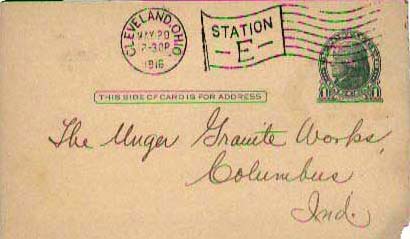 CLEVELAND, OHIO.
MAY 20
7-30P
1916
STATION
-E-
THIS SIDE OF CARD IS FOR ADDRESS
1 1
The Unger Granite Works,
Columbus
Ind.